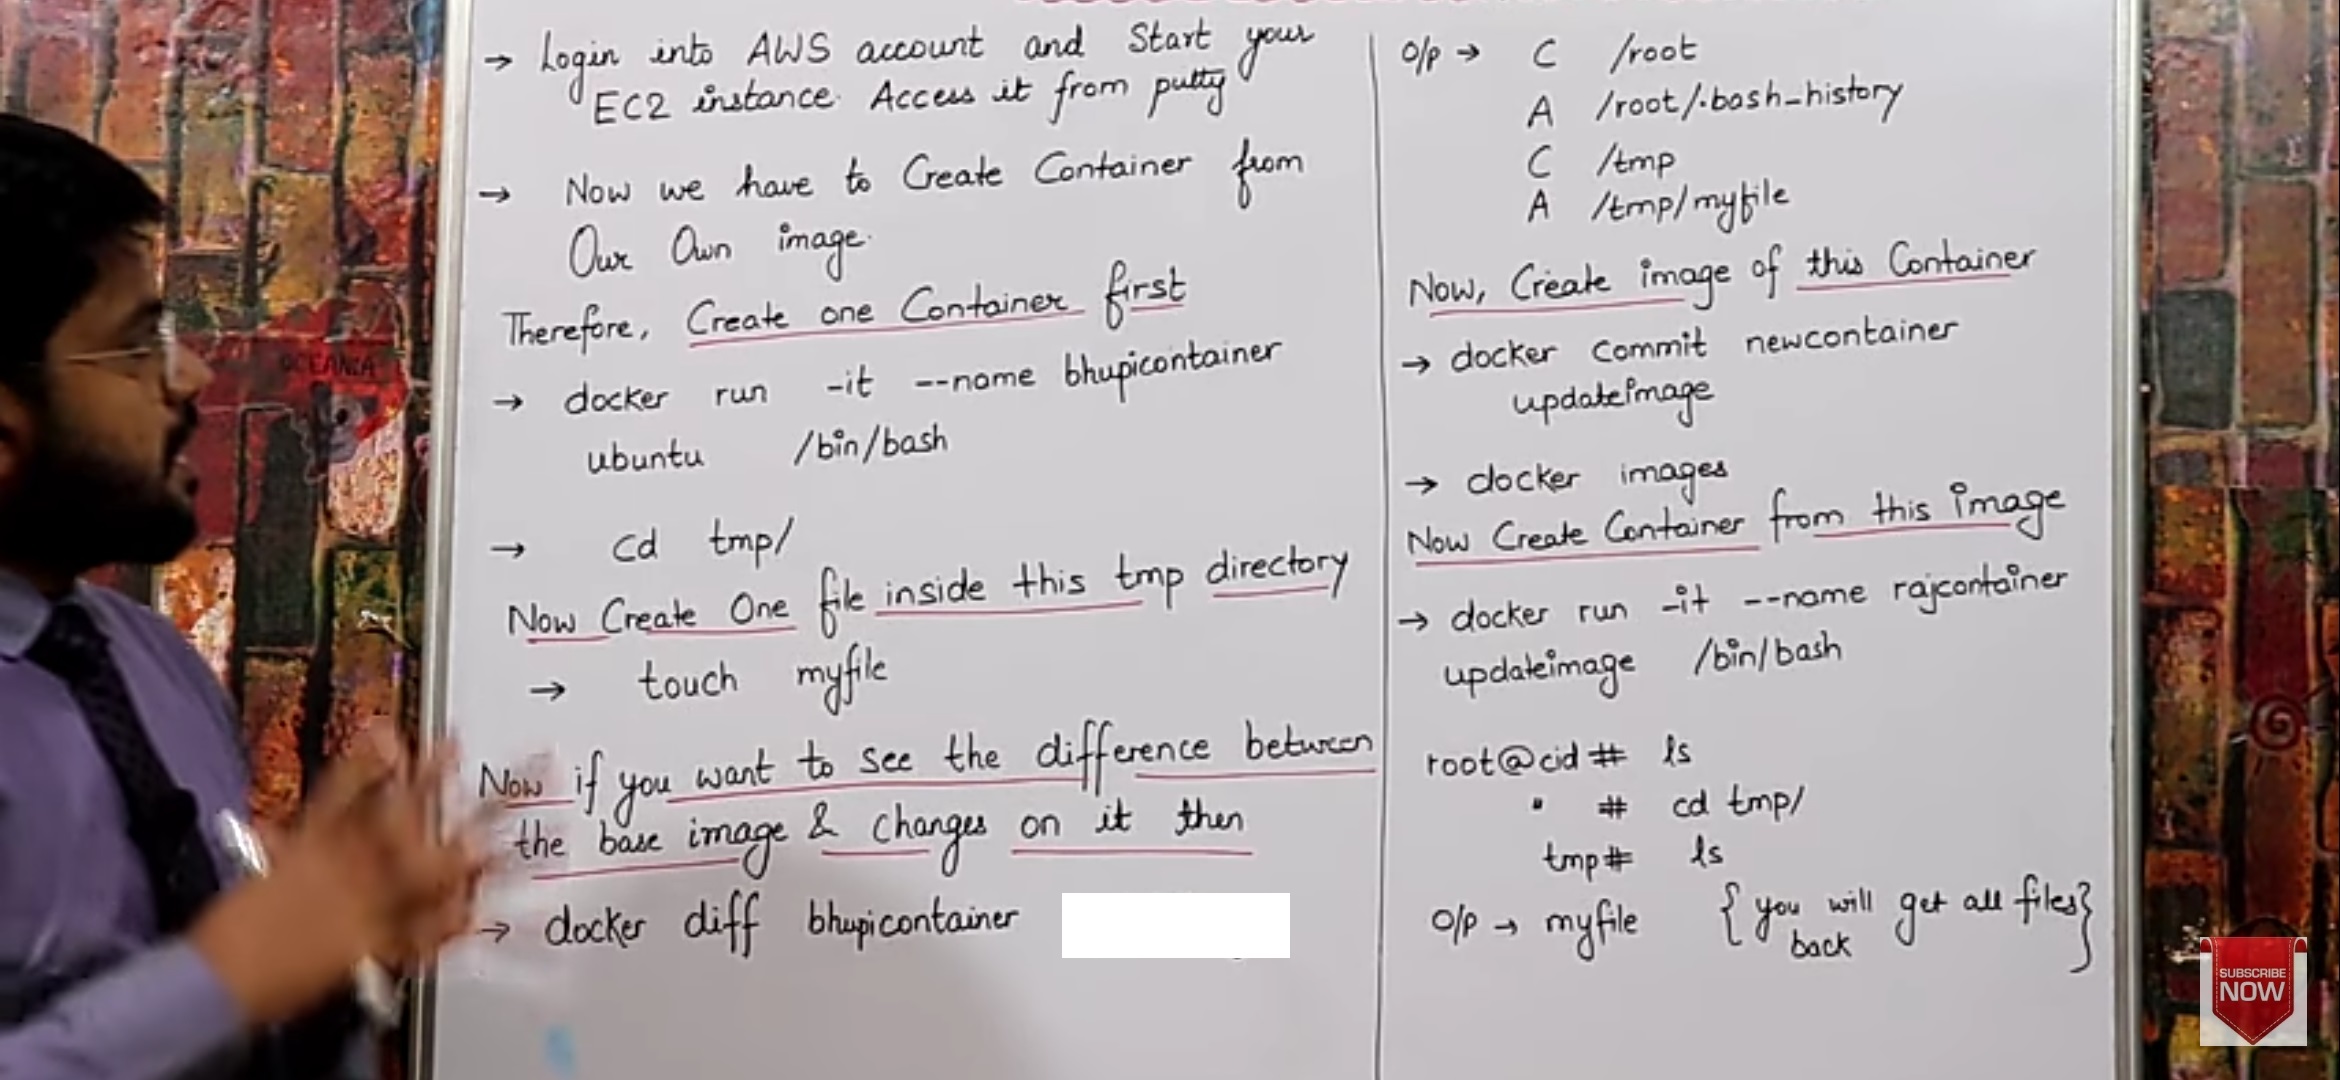 → Login into AWS account and Start your
EC2 instance. Access it from putty
→ Now we have to Create Container from
Our Own image.
Therefore, Create one Container first
→ docker run -it --name bhupicontainer
ubuntu /bin/bash
→ cd tmp/
Now Create One file inside this tmp directory
→ touch myfile
Now if you want to see the difference between
the base image & changes on it then
→ docker diff bhupicontainer
O/p → C /root
A /root/.bash_history
C /tmp
A /tmp/myfile
Now, Create image of this Container
→ docker commit newcontainer
updateimage
→ docker images
Now Create Container from this image
→ docker run -it --name rajcontainer
updateimage /bin/bash
root@cid # ls
" # cd tmp/
tmp # ls
O/p → myfile {you will get all files}
back
OCEANIA
SUBSCRIBE
NOW